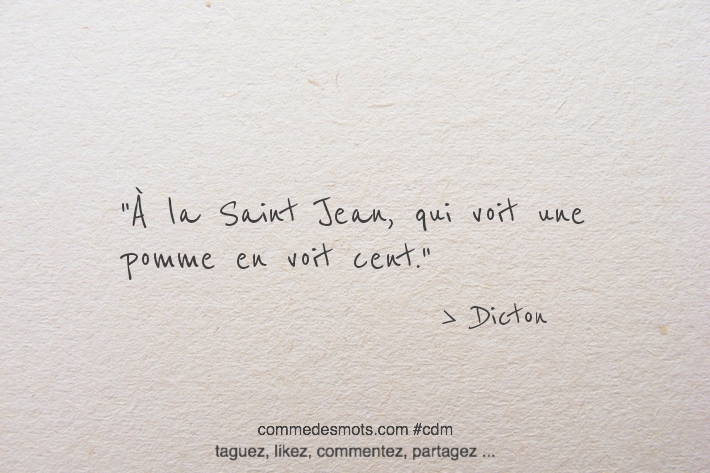 "À la Saint Jean, qui voit une
pomme en voit cent."
> Dicton
commedesmots.com #cdm
taguez, likez, commentez, partagez ...